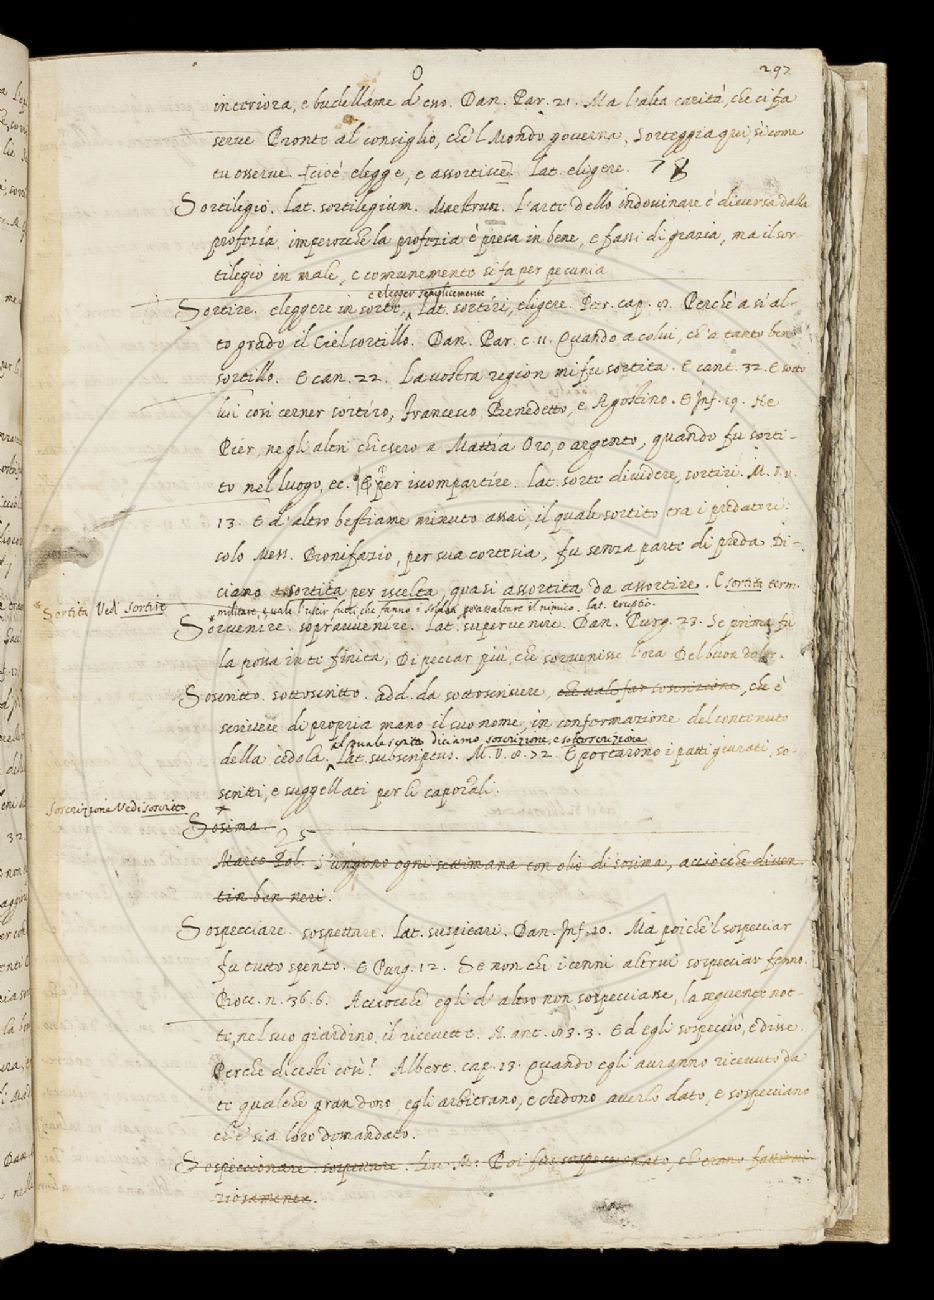 O
297
interiora, e budellame d'esso. Dan. Par. 21. Ma l'alta carità, che ci fa
serve Pronte al consiglio, che 'l Mondo governa, Sorteggia qui, sì come
tu osserve. cioè elegge, e assortisce. Lat. eligere. 78
Sortilegio. Lat. sortilegium. Maestruz. L'arte dello indovinare è diversa dalla
profezía, imperocchè la profezia è presa in bene, e fassi di grazia, ma il sor-
tilegio in male, e comunemente si fa per pecunia
e elegger semplicemente
Sortire. eleggere in sorte, Lat. sortiri, eligere. Petr. cap. Perchè a sì al-
to grado il Ciel sortillo. Dan. Par. c. 11. Quando a colui, ch' a tanto ben
sortillo. E can. 22. La vostra region mi fu sortita. E cant. 32. E sotto
lui così cerner sortiro, Francesco Benedetto, e Agostino. E Inf. 19. Ne
Pier, ne gli altri chiesero a Mattía Oro, o argento, quando fu sorti-
to nel luogo, ec. E per iscompartire. Lat. sorte dividere, sortiri. M. V.
13. E d' altro bestiame minuto assai, il quale sortito tra i predatori:
solo Mess. Bonifazio, per sua cortesia, fu senza parte di preda Di-
ciamo sortita per iscelta, quasi assortita da assortire. E sortita term.
Sortita Ved. Sortire
militare, quale l'uscir fuori, che fanno i soldati per assaltare il nimico. lat. eruptio.
Sorvenire. sopravvenire. Lat. supervenire. Dan. Purg. 23. Se prima fu
la possa in te finita, Di peccar più, che sorvenisse l'ora Del buon dolor.
Soscritto. sottoscritto. add. da sottoscrivere, che vale far soscrizione, che è
scrivere di propria mano il suo nome, in confermazione del contenuto
al quale scritto diciamo soscrizione, e sottoscrizione
della cedola. Lat. subscriptus. M. V. 8. 32. E portarono i patti giurati, so-
scritti, e suggellati per li caporali.
Soscrizzione Vedi soscritto
Sosima.
25
Marco Pol. S' ungono ogni settimana con olio di sosima, acciocchè diven-
tin ben neri.
Sospecciare. sospettare. Lat. suspicari. Dan. Inf. 10. Ma poichè 'l sospecciar
fu tutto spento. E Purg. 12. Se non che i cenni altrui sospecciar fenno.
Bocc. n. 36. 6. Acciocchè egli d' altro non sospecciasse, la seguente not-
te, nel suo giardino il ricevette. N. ant. 3. Ed egli sospecciò, e disse
Perchè dicesti così? Albert. cap. 13. Quando egli avranno ricevuto da
te qualche gran dono, egli arbitrano, e credono averlo dato, e sospecciano
che sia loro domandato.
Sospeccionare. sospettare. Liv. M. Poi sospeccionato, ch' erano fatti
riosamente.